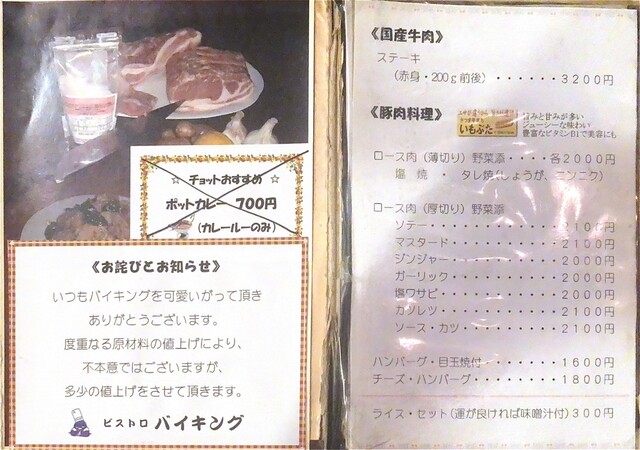 ☆ チョットおすすめ ☆
ポットカレー 700円
(カレールーのみ)
《お詫びとお知らせ》
いつもバイキングを可愛いがって頂き
ありがとうございます。
度重なる原材料の値上げにより、
不本意ではございますが、
多少の値上げをさせて頂きます。
ビストロ バイキング
《国産牛肉》
ステーキ
(赤身・200g前後)・・・・・・3200円
《豚肉料理》
いもぶた
旨みと甘みが多い
ジューシーな味わい
豊富なビタミンB1で美容にも
ロース肉(薄切り)野菜添・・・・各2000円
塩焼・タレ焼(しょうが、ニンニク)
ロース肉(厚切り)野菜添
ソテー・・・・・・・・・・・・210円
マスタード・・・・・・・・・・2100円
ジンジャー・・・・・・・・・・2000円
ガーリック・・・・・・・・・・2000円
塩ワサビ・・・・・・・・・・・2000円
カツレツ・・・・・・・・・・・2100円
ソース・カツ・・・・・・・・・2100円
ハンバーグ・目玉焼付・・・・・・1600円
チーズ・ハンバーグ・・・・・・・1800円
ライス・セット(運が良ければ味噌汁付)300円